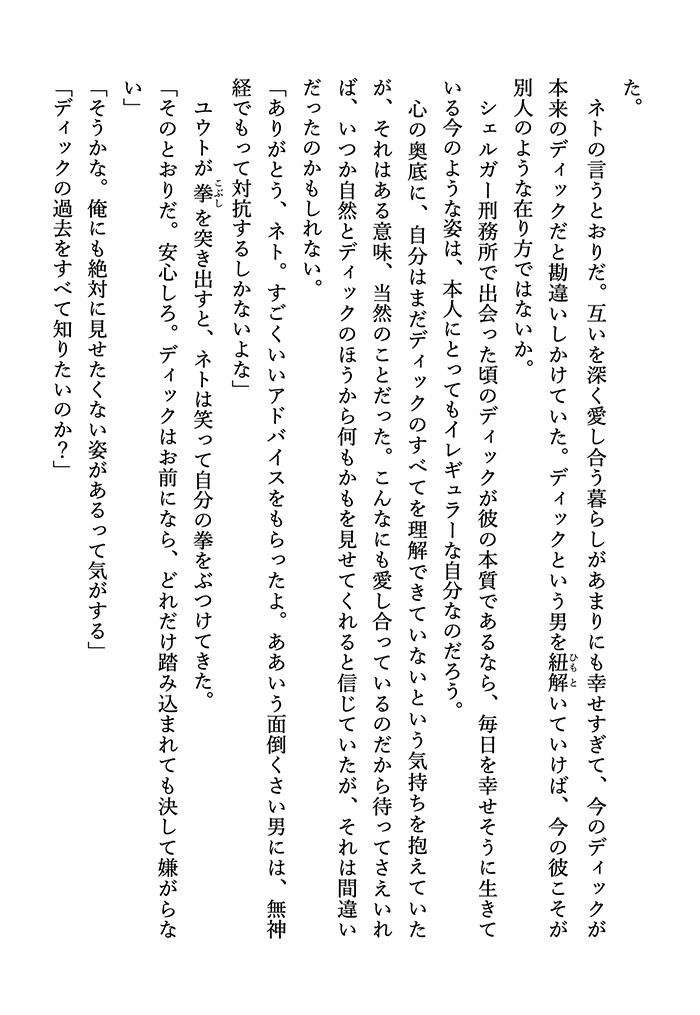 た。
　ネトの言うとおりだ。互いを深く愛し合う暮らしがあまりにも幸せすぎて、今のディックが
本来のディックだと勘違いしかけていた。ディックという男を紐解いていけば、今の彼こそが
別人のような在り方ではないか。
　シェルガー刑務所で出会った頃のディックが彼の本質であるなら、毎日を幸せそうに生きて
いる今のような姿は、本人にとってもイレギュラーな自分なのだろう。
　心の奥底に、自分はまだディックのすべてを理解できていないという気持ちを抱えていた
が、それはある意味、当然のことだった。こんなにも愛し合っているのだから待ってさえいれ
ば、いつか自然とディックのほうから何もかもを見せてくれると信じていたが、それは間違い
だったのかもしれない。
「ありがとう、ネト。すごくいいアドバイスをもらったよ。ああいう面倒くさい男には、無神
経でもって対抗するしかないよな」
　ユウトが拳を突き出すと、ネトは笑って自分の拳をぶつけてきた。
「そのとおりだ。安心しろ。ディックはお前になら、どれだけ踏み込まれても決して嫌がらな
い」
「そうかな。俺にも絶対に見せたくない姿があるって気がする」
「ディックの過去をすべて知りたいのか？」